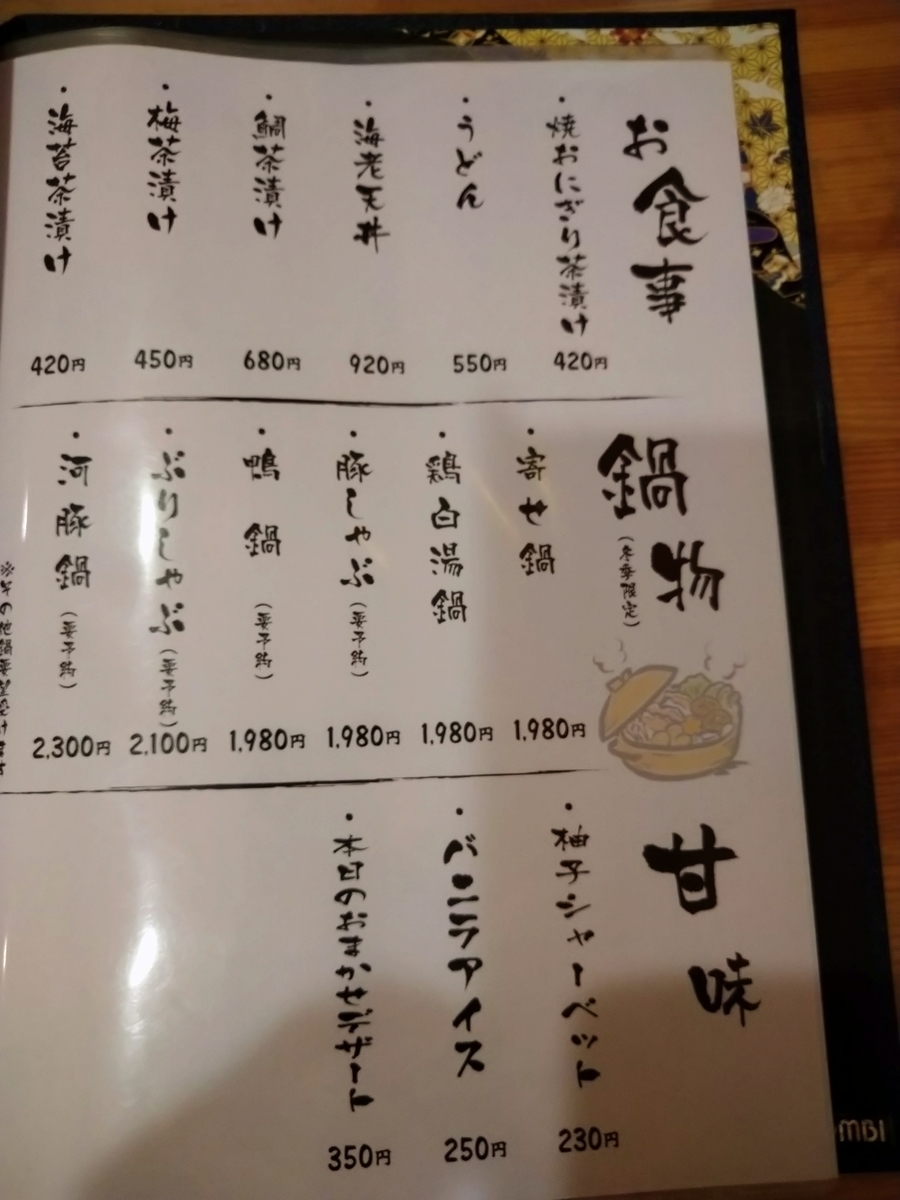 お食事
・焼おにぎり茶漬け
420円
・うどん
550円
・海老天丼
920円
・鯛茶漬け
680円
・梅茶漬け
450円
・海苔茶漬け
420円
鍋物
(冬季限定)
・寄せ鍋
1,980円
・鶏白湯鍋
1,980円
・豚しゃぶ(要予約)
1,980円
・鴨鍋(要予約)
1,980円
・ぶりしゃぶ(要予約)
2,100円
・河豚鍋(要予約)
2,300円
※その他鍋要望受けます
甘味
・柚子シャーベット
230円
・バニラアイス
250円
・本日のおまかせデザート
350円
MBI